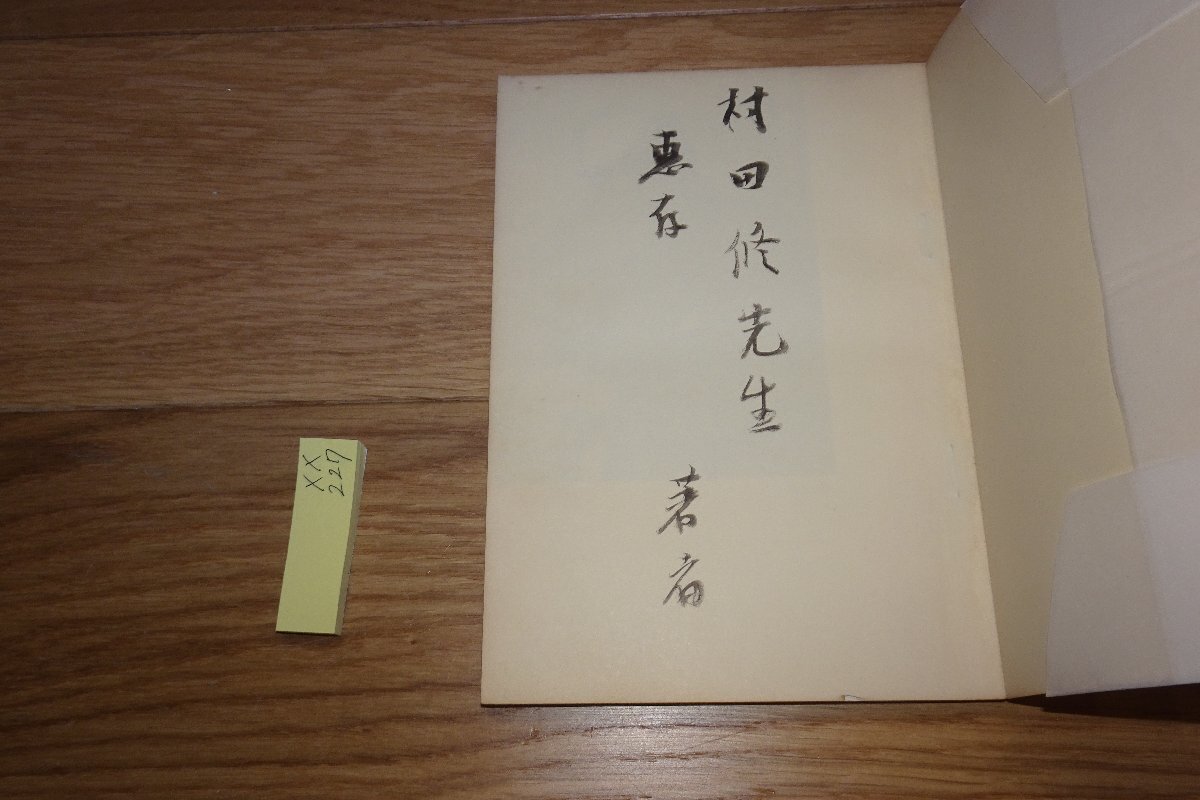 村田修先生
惠存
著者
XX
227